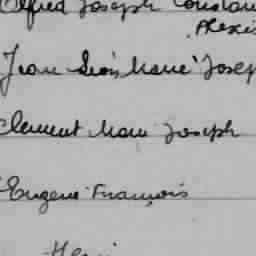 Alfred Joseph Constan
Alexis
Jean Léon Marie Josep
Clement Marie Joseph
Eugene François
Henri